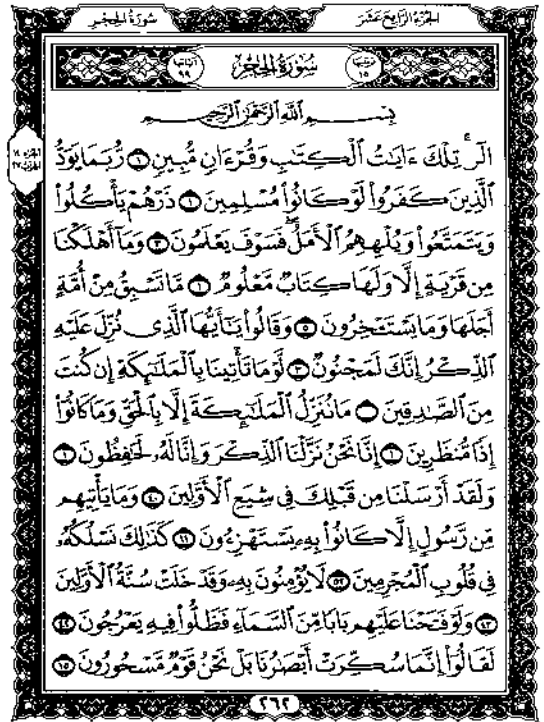 سُورَةُ الحِجْر
الجُزْءُ الرَّابِعَ عَشَرَ
آياتها ٩٩
سُورَةُ الحِجْرِ
ترتيبها ١٥
بِسْمِ اللَّهِ الرَّحْمَٰنِ الرَّحِيمِ
الٓر ۚ تِلْكَ ءَايَٰتُ ٱلْكِتَٰبِ وَقُرْءَانٍ مُّبِينٍ ١ رُّبَمَا يَوَدُّ
ٱلَّذِينَ كَفَرُوا۟ لَوْ كَانُوا۟ مُسْلِمِينَ ٢ ذَرْهُمْ يَأْكُلُوا۟
وَيَتَمَتَّعُوا۟ وَيُلْهِهِمُ ٱلْأَمَلُ ۖ فَسَوْفَ يَعْلَمُونَ ٣ وَمَآ أَهْلَكْنَا
مِن قَرْيَةٍ إِلَّا وَلَهَا كِتَابٌ مَّعْلُومٌ ٤ مَّا تَسْبِقُ مِنْ أُمَّةٍ
أَجَلَهَا وَمَا يَسْتَـْٔخِرُونَ ٥ وَقَالُوا۟ يَٰٓأَيُّهَا ٱلَّذِى نُزِّلَ عَلَيْهِ
ٱلذِّكْرُ إِنَّكَ لَمَجْنُونٌ ٦ لَّوْ مَا تَأْتِينَا بِٱلْمَلَٰٓئِكَةِ إِن كُنتَ
مِنَ ٱلصَّٰدِقِينَ ٧ مَا نُنَزِّلُ ٱلْمَلَٰٓئِكَةَ إِلَّا بِٱلْحَقِّ وَمَا كَانُوٓا۟
إِذًا مُّنظَرِينَ ٨ إِنَّا نَحْنُ نَزَّلْنَا ٱلذِّكْرَ وَإِنَّا لَهُۥ لَحَٰفِظُونَ ٩
وَلَقَدْ أَرْسَلْنَا مِن قَبْلِكَ فِى شِيَعِ ٱلْأَوَّلِينَ ١٠ وَمَا يَأْتِيهِم
مِّن رَّسُولٍ إِلَّا كَانُوا۟ بِهِۦ يَسْتَهْزِءُونَ ١١ كَذَٰلِكَ نَسْلُكُهُۥ
فِى قُلُوبِ ٱلْمُجْرِمِينَ ١٢ لَا يُؤْمِنُونَ بِهِۦ وَقَدْ خَلَتْ سُنَّةُ ٱلْأَوَّلِينَ
١٣ وَلَوْ فَتَحْنَا عَلَيْهِم بَابًا مِّنَ ٱلسَّمَآءِ فَظَلُّوا۟ فِيهِ يَعْرُجُونَ ١٤
لَقَالُوٓا۟ إِنَّمَا سُكِّرَتْ أَبْصَٰرُنَا بَلْ نَحْنُ قَوْمٌ مَّسْحُورُونَ ١٥
٢٦٢